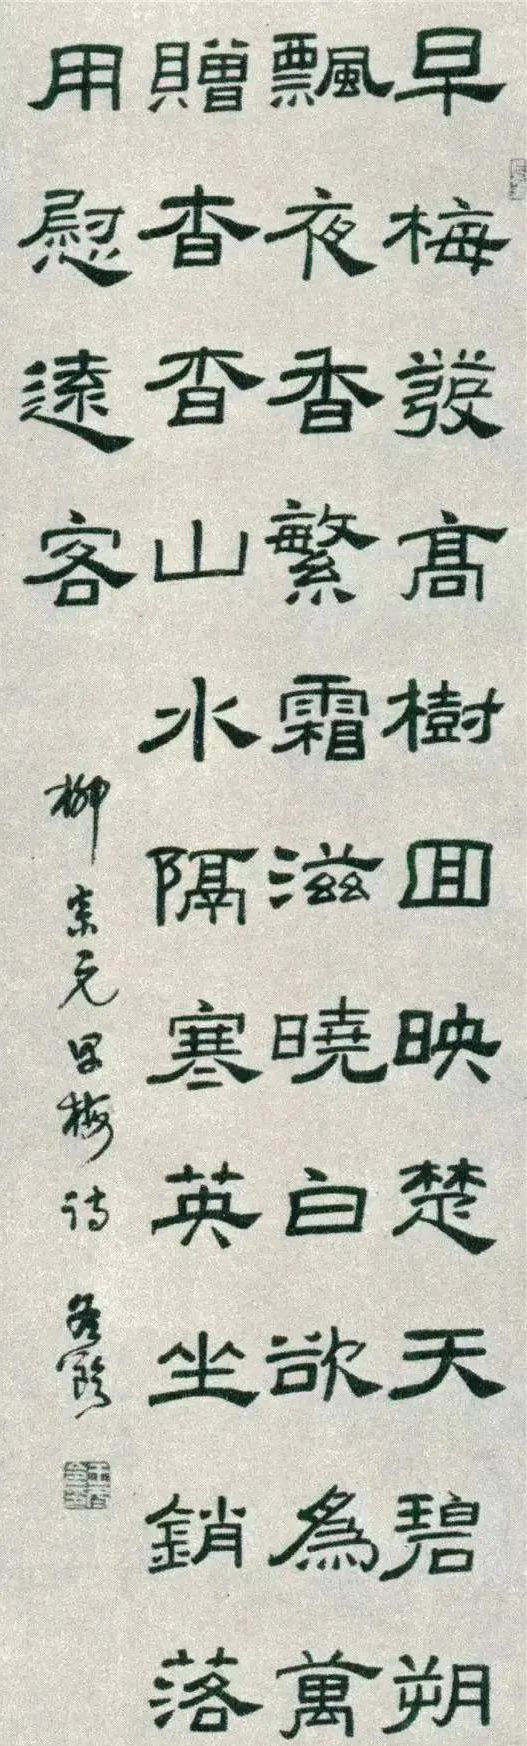 早梅發髙樹囬映楚天碧朔
飄夜香繁霜滋曉白欲爲萬
贈杳杳山水隔寒英坐銷落
用慰遠客
柳宗元早梅詩